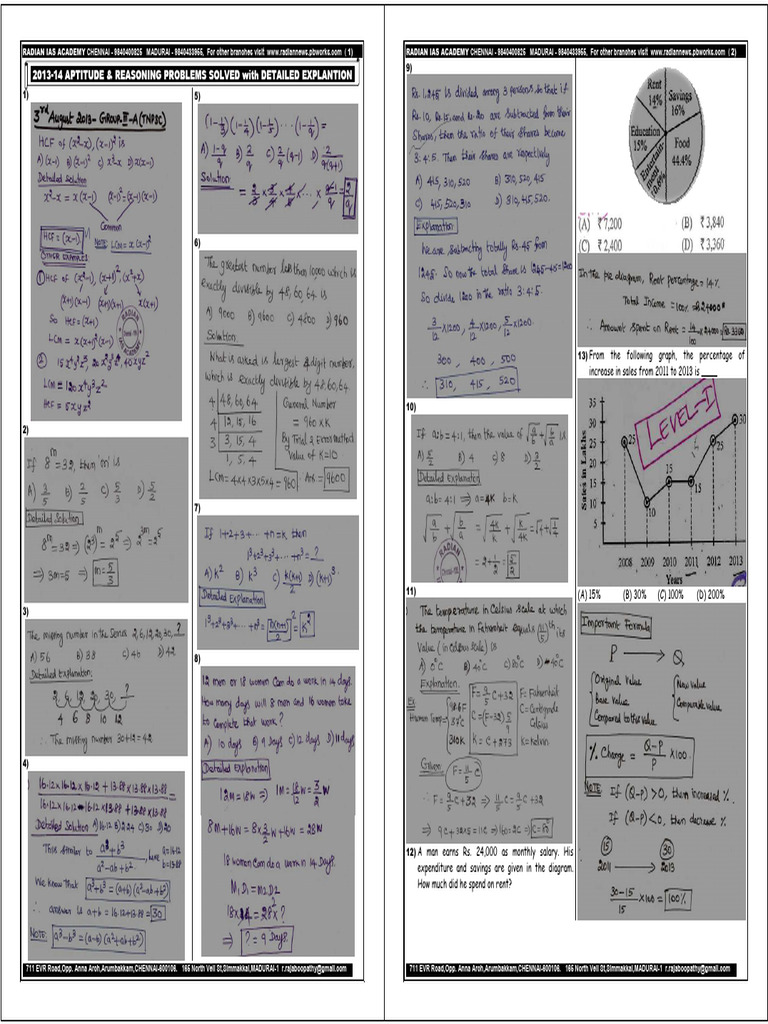 RADIAN IAS ACADEMY CHENNAI - 9840400825 MADURAI - 9840433955, For other branches visit www.radiannews.pbworks.com ( 1)
2013-14 APTITUDE & REASONING PROBLEMS SOLVED with DETAILED EXPLANTION
1)
3rd August 2013- GROUP-II-A (TNPSC)
HCF of (x²-x), (x-1)² is
A) (x-1) B) (x-1)² C) x²-x D) x(x-1)
Detailed Solution
x²-x = x(x-1) (x-1)² = (x-1)(x-1)
Common
HCF = (x-1)
NOTE: LCM = x(x-1)²
OTHER EXAMPLES
① HCF of (x²-1), (x+1)², (x²+x)
(x+1)(x-1) (x+1)(x+1) x(x+1)
So HCF = (x+1)
LCM = x(x+1)²(x-1)
RADIAN
2)
If 8^m = 32, then 'm' is
A) 3/5 B) 2/5 C) 5/3 D) 5/2
Detailed Solution
8^m = 32 ⇒ (2³)^m = 2⁵ ⇒ 2^3m = 2⁵
⇒ 3m = 5 ⇒ m = 5/3
3)
The missing number in the Series 2, 6, 12, 20, 30, ?
A) 56 B) 38 C) 40 D) 42
Detailed Explanation:
2 6 12 20 30 ?
4 6 8 10 12
∴ The missing number 30+12 = 42
4)
16.12×16.12×16.12 + 13.88×13.88×13.88
16.12×16.12 - 16.12×13.88 + 13.88×13.88
Detailed Solution A) 16.12 B) 2.24 C) 30 D) 20
This similar to a³+b³ / a²-ab+b², here a=16.12 b=13.88
We know that a³+b³ = (a+b)(a²-ab+b²)
∴ answer is a+b = 16.12+13.88 = 30
NOTE: a³-b³ = (a-b)(a²+ab+b²)
5)
(1-1/3)(1-1/4)(1-1/5) ... (1-1/q) =
Solution
6)
The greatest number less than 10000 which is
exactly divisible by 48, 60, 64 is
A) 9000 B) 9600 C) 4800 D) 960
Solution:
What is asked is largest 4 digit number,
which is exactly divisible by 48, 60, 64
4 48, 60, 64
4 12, 15, 16
3 3, 15, 4
1, 5, 4
General Number
= 960 × K
By Trial & Error method
Value of K = 10
LCM = 4×4×3×5×4 = 960 Ans = 9600
7)
If 1+2+3+...+n = k then
1³+2³+3³+...+n³ = ?
A) k² B) k³ C) k(k+1)/2 D) (k+1)³
Detailed Explanation
1³+2³+3³+...+n³ = [n(n+1)/2]² = k²
8)
12 men or 18 women can do a work in 14 days.
How many days will 8 men and 16 women take
to complete that work?
A) 10 days B) 9 Days C) 12 days D) 11 days
Detailed Explanation
12M = 18W ⇒ 1M = 18/12 W = 3/2 W
8M + 16W = 8×3/2 W + 16W = 28W
18 women can do a work in 14 Days.
M₁D₁ = M₂D₂
18×14 = 28×?
⇒ ? = 9 Days.
711 EVR Road,Opp. Anna Arch,Arumbakkam,CHENNAI-600106. 165 North Veli St,Simmakkal,MADURAI-1 r.rajaboopathy@gmail.com
RADIAN IAS ACADEMY CHENNAI - 9840400825 MADURAI - 9840433955, For other branches visit www.radiannews.pbworks.com ( 2)
9)
Rs. 1245 is divided among 3 persons so that if
Rs. 10, Rs. 15, and Rs. 20 are subtracted from their
Shares, then the ratio of their shares become
3:4:5. Then their shares are respectively
A) 415, 310, 520 B) 310, 520, 415
C) 415, 520, 310 D) 310, 415, 520.
Explanation
We are subtracting totally Rs. 45 from
1245. So now the total share is 1245-45=1200
So divide 1200 in the ratio 3:4:5.
3/12 ×1200, 4/12 ×1200, 5/12 ×1200
300, 400, 500
∴ 310, 415, 520
10)
If a:b = 4:1, then the value of √a/b + √b/a is
A) 5/2 B) 4 C) 8 D) 3/2
Detailed Explanation
a:b = 4:1 ⇒ a = 4k b = k
√a/b + √b/a = √4k/k + √k/4k = √4 + √1/4
= 2 + 1/2 = 5/2
RADIAN
11)
The temperature in Celsius scale at which
the temperature in Fahrenheit equals (11/5)th its
Value (in Celsius scale) is
Explanation:
Ex
Human Temp=
310K
F = 9/5 C + 32
C = (F-32) 5/9
K = C + 273
F = Fahrenheit
C = Centigrade
Celsius
K = Kelvin
Given
F = 11/5 C
∴ F = 9/5 C + 32 ⇒ 11/5 C = 9/5 C + 32
⇒ 9C + 32×5 = 11C ⇒ 160 = 2C ⇒ C = 80°
12) A man earns Rs. 24,000 as monthly salary. His
expenditure and savings are given in the diagram.
How much did he spend on rent?
Rent
14%
Savings
16%
Education
15%
Food
44.4%
Entertain-
ment
10.6%
(A) ₹ 7,200 (B) ₹ 3,840
(C) ₹ 2,400 (D) ₹ 3,360
In the pie diagram, Rent percentage = 14%
Total Income = 100% = 24000
∴ Amount Spent on Rent = 14/100 × 24000 = Rs. 3360
13) From the following graph, the percentage of
increase in sales from 2011 to 2013 is ____
LEVEL-I
Sales in Lakhs
35
30
25
20
15
10
5
25
10
15
15
25
30
2008 2009 2010 2011 2012 2013
Years
(A) 15% (B) 30% (C) 100% (D) 200%
Important Formula
P → Q
Original Value
Base value
Compared to this value
New value
Comparable value
% Change = Q-P/P × 100
NOTE If (Q-P) >0, then increased %.
If (Q-P) <0, then decrease %
15 30
2011 → 2013
30-15/15 × 100 = 100%
711 EVR Road,Opp. Anna Arch,Arumbakkam,CHENNAI-600106. 165 North Veli St,Simmakkal,MADURAI-1 r.rajaboopathy@gmail.com